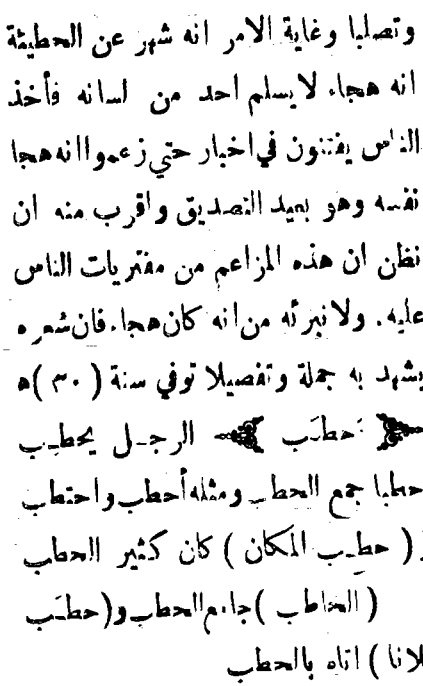 وتصلبا وغاية الامر انه شهر عن الحطيئة
انه هجاء لايسلم احد من لسانه فأخذ
الناس يفتنون في اخبار حتي زعموا انه هجا
نفسه وهو بعيد التصديق واقرب منه ان
نظن ان هذه المزاعم من مفتريات الناس
عليه. ولا نبرئه من انه كان هجاء فان شعره
يشهد به جملة وتفصيلا توفي سنة (٣٠) ه
حطَب الرجل يحطِب
حطبا جمع الحطب ومثله أحطب واحتطب
(حطِب المكان) كان كثير الحطب
(الحاطب) جامع الحطب و(حطَب
فلانا) اتاه بالحطب